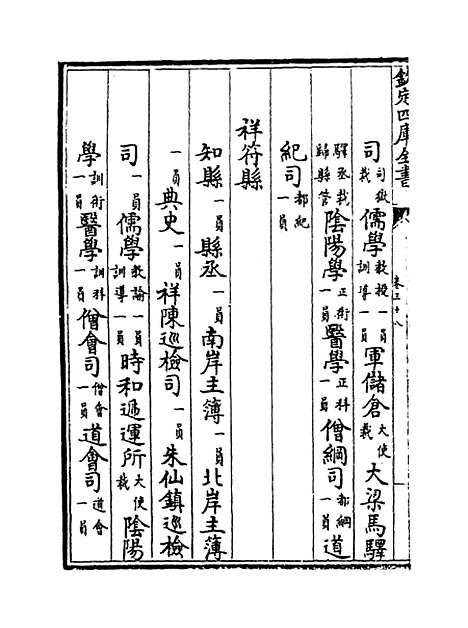 欽定四庫全書
卷三十八
司司獄裁儒學教授一員訓導一員軍儲倉大使裁大梁馬驛
驛丞裁歸縣管陰陽學正術一員醫學正科一員僧綱司都綱一員道
紀司都紀一員
祥符縣
知縣一員縣丞一員南岸主簿一員北岸主簿
一員典史一員祥陳巡檢司一員朱仙鎮巡檢
司一員儒學教諭一員訓導一員時和遞運所大使裁陰陽
學訓術一員醫學訓科一員僧會司僧會一員道會司道會一員